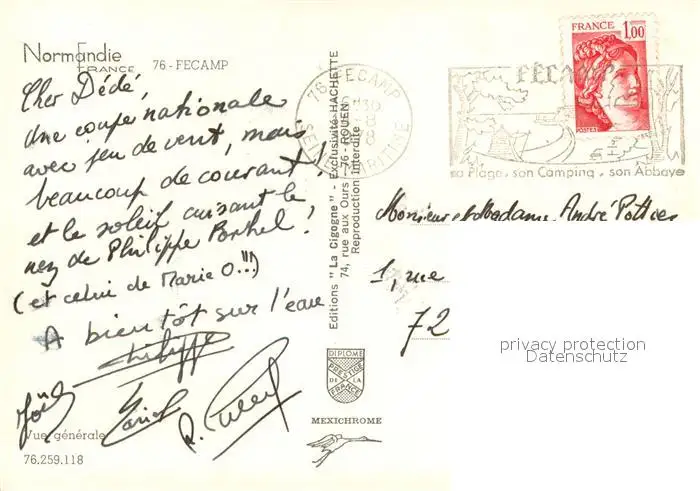 Normandie
FRANCE
76 - FECAMP
Cher Dédé,
une coupe nationale
avec peu de vent, mais
beaucoup de courant!
et le soleil cuisant le
nez de Philippe !
(et celui de Marie O...!!)
A bientôt sur l'eau
Philippe
Joël
Vue générale
76.259.118
Editions "La Cigogne" - Exclusivité HACHETTE
74, rue aux Ours - 76 - ROUEN
Reproduction Interdite
DIPLOME
PRESTIGE
DE LA
FRANCE
MEXICHROME
76 - FECAMP
SEINE MARITIME
FRANCE
1,00
POSTES
FÉCAMP
sa Plage, son Camping, son Abbaye
Monsieur et Madame André
1, rue
72
privacy protection
Datenschutz